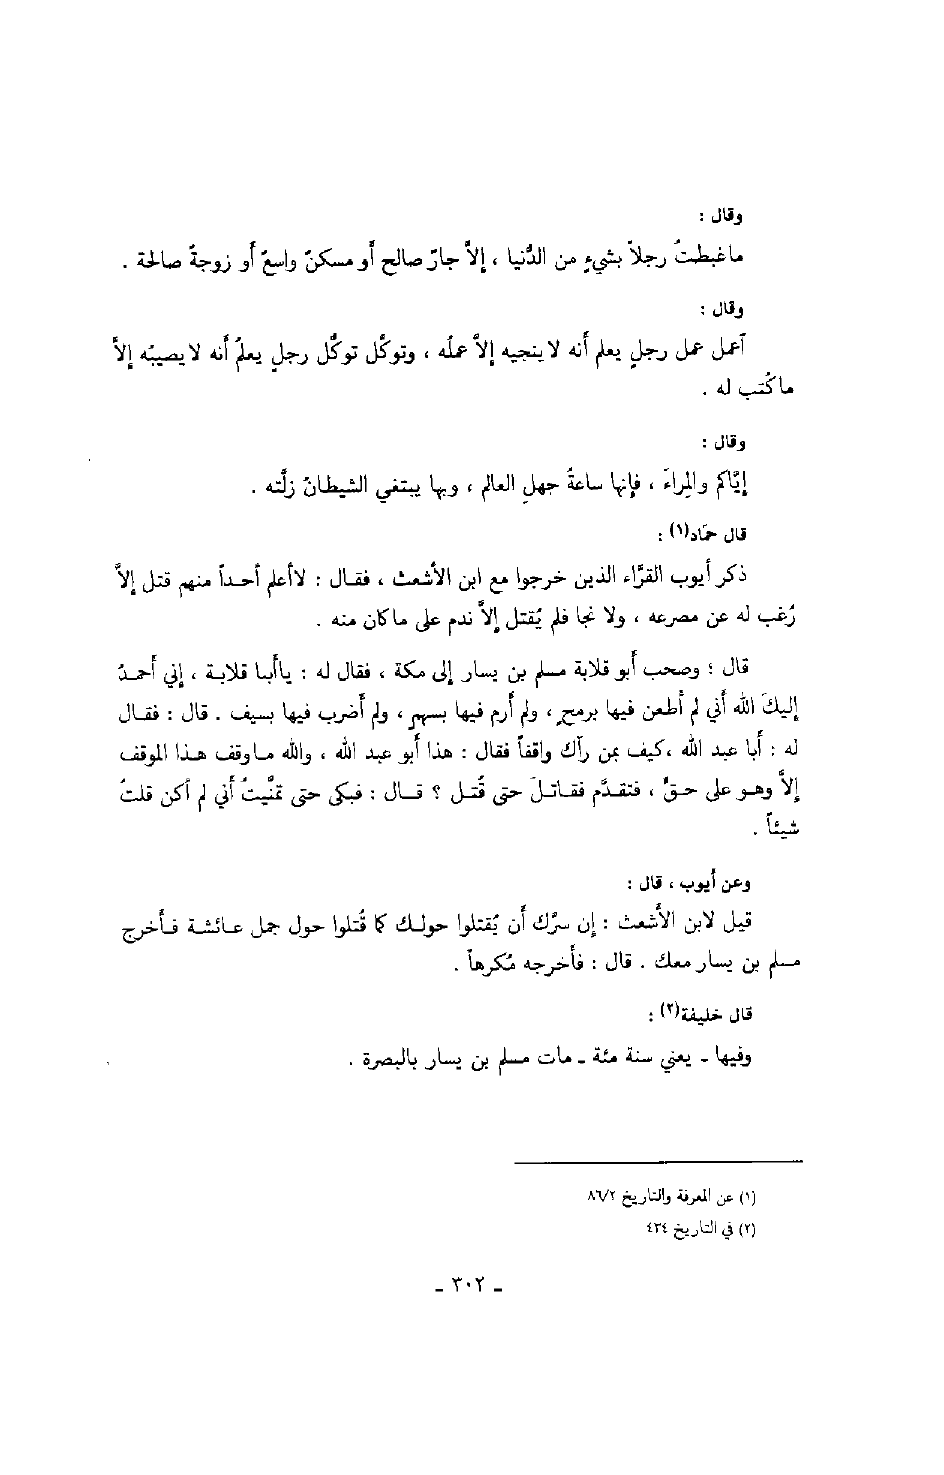 وقال :
ماغبطتُ رجلاً بشيءٍ من الدُّنيا ، إلاَّ جارٌ صالح أو مسكنٌ واسعٌ أو زوجةٌ صالحة .
وقال :
آعمل عمل رجلٍ يعلم أنه لاينجيه إلاَّ عملُه ، وتوكَّل توكُّل رجلٍ يعلمُ أنه لايصيبُه إلاَّ
ماكُتب له .
وقال :
إيَّاكم والمِراءَ ، فإنها ساعةُ جهلِ العالم ، وبها يبتغي الشيطانُ زلَّته .
قال حمّاد(١) :
ذكر أيوب القرَّاء الذين خرجوا مع ابن الأشعث ، فقال : لاأعلم أحداً منهم قتل إلاَّ
رُغب له عن مصرعه ، ولا نجا فلم يُقتل إلاَّ ندم على ماكان منه .
قال ؛ وصحب أبو قلابة مسلم بن يسار إلى مكة ، فقال له : ياأبا قلابة ، إني أحمدُ
إليكَ الله أني لم أطعن فيها برمحٍ ، ولم أرم فيها بسهمٍ ، ولم أضرب فيها بسيف . قال : فقال
له : أبا عبد الله ،كيف بمن رآك واقفاً فقال : هذا أبو عبد الله ، والله ماوقف هذا الموقف
إلاَّ وهو على حقٍّ ، فتقدَّم فقاتلَ حتى قُتل ؟ قال : فبكى حتى تمنَّيتُ أني لم أكن قلتُ
شيئاً .
وعن أيوب ، قال :
قيل لابن الأشعث : إن سرَّك أن يُقتلوا حولك كما قُتلوا حول جمل عائشة فأخرج
مسلم بن يسار معك . قال : فأخرجه مُكرهاً .
قال خليفة(٢) :
وفيها ـ يعني سنة مئة ـ مات مسلم بن يسار بالبصرة .
(١) عن المعرفة والتاريخ ٨٦/٢
(٢) في التاريخ ٤٣٤
ـ ٣٠٢ ـ